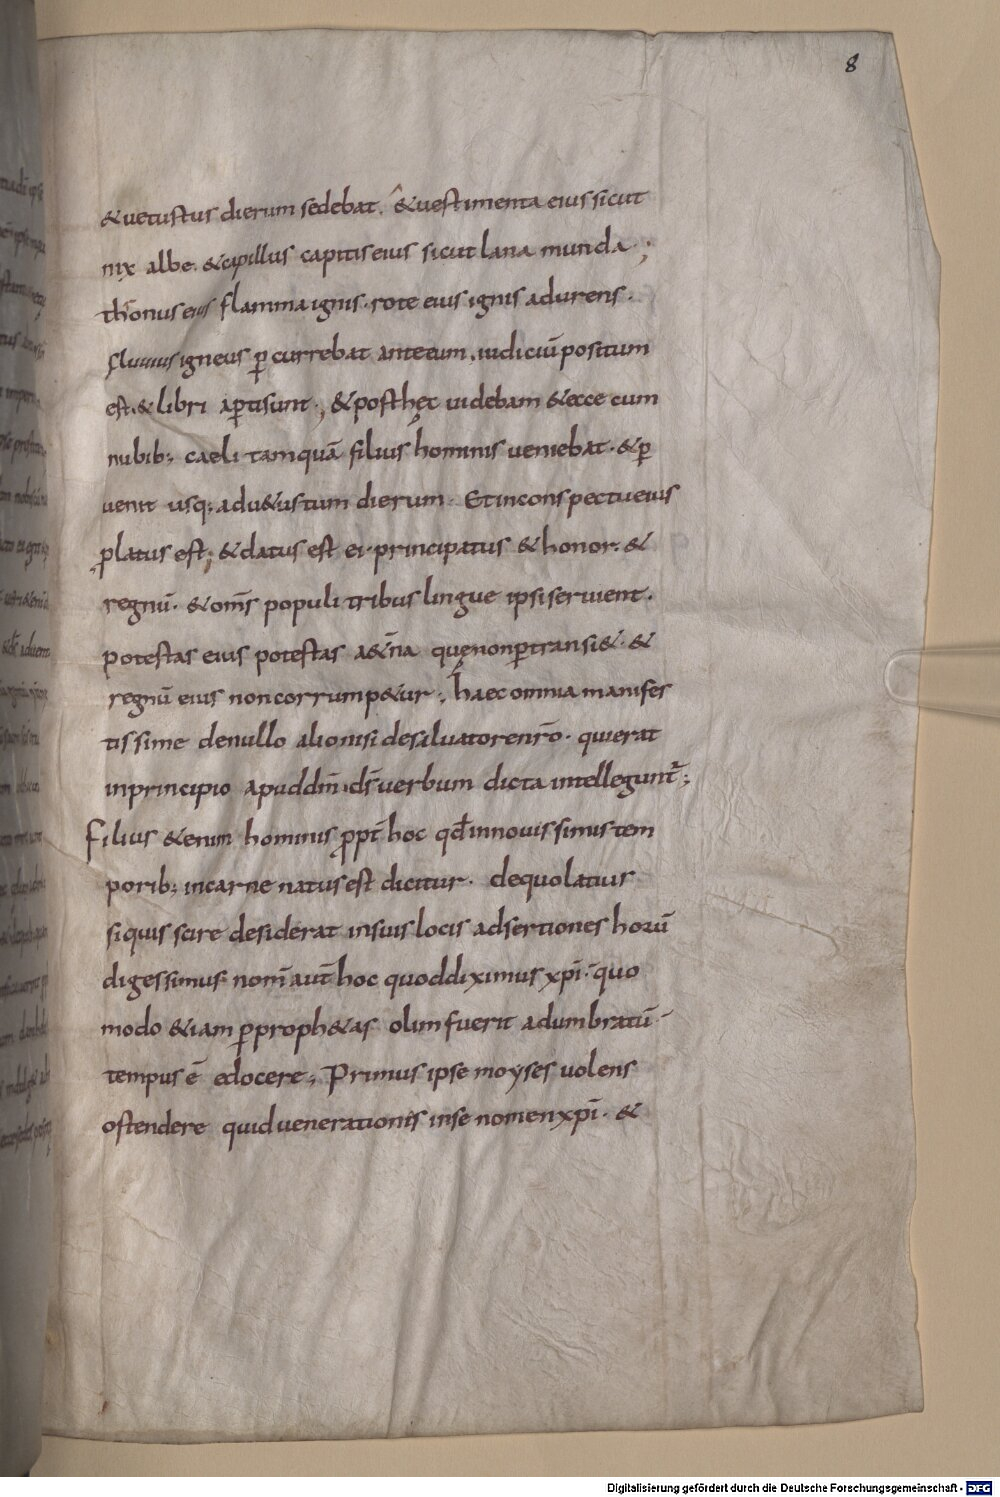 8
& uetustus dierum sedebat. & uestimenta eius sicut
nix albe. & capillus capitis eius sicut lana munda;
thronus eius flamma ignis. rote eius ignis adurens.
fluuius igneus ꝑcurrebat ante eum. iudiciū positum
est. & libri aꝑti sunt; & post hęc uidebam & ecce cum
nubib; caeli tamquā filius hominis ueniebat. & ꝑ
uenit usq; ad u&ustum dierum. Et in conspectu eius
ꝓlatus est; & datus est ei principatus & honor. &
regnū. & om̄s populi tribus lingue ipsi seruient.
potestas eius potestas a&̄na quę non ꝑtransi&. &
regnū eius non corrump&ur; haec omnia manifes
tissime de nullo alio nisi de saluatore nr̄o. qui erat
in principio apud dm̄. ds̄ uerbum dicta intellegunt̄;
Filius &enim hominis ꝓpt̄ hoc qđ in nouissimis tem
porib; in carne natus est dicitur. de quo latius
siquis scire desiderat in suis locis adsertiones horū
digessimus. nom̄ aut̄ hoc quod diximus xp̄i. quo
modo &iam ꝑ proph&as olim fuerit adumbratū
tempus ē edocere; Primus ipse moyses uolens
ostendere quid uenerationis in se nomen xp̄i. &
Digitalisierung gefördert durch die Deutsche Forschungsgemeinschaft - DFG